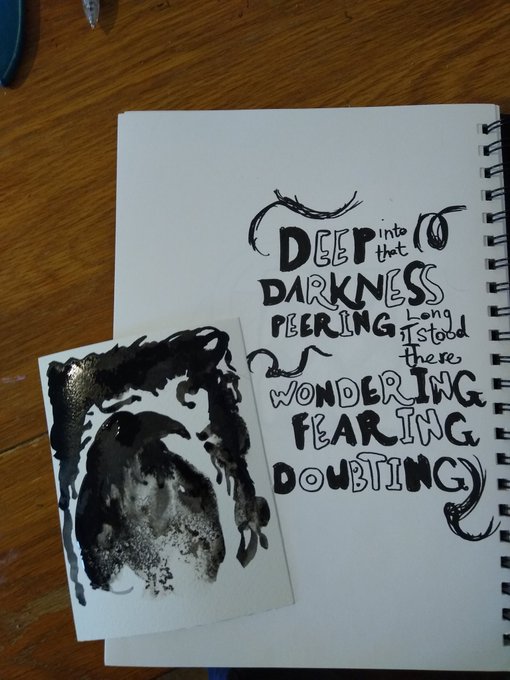 DEEP into that
DARKNESS
PEERING Long
I stood
there
WONDERING
FEARING
DOUBTING